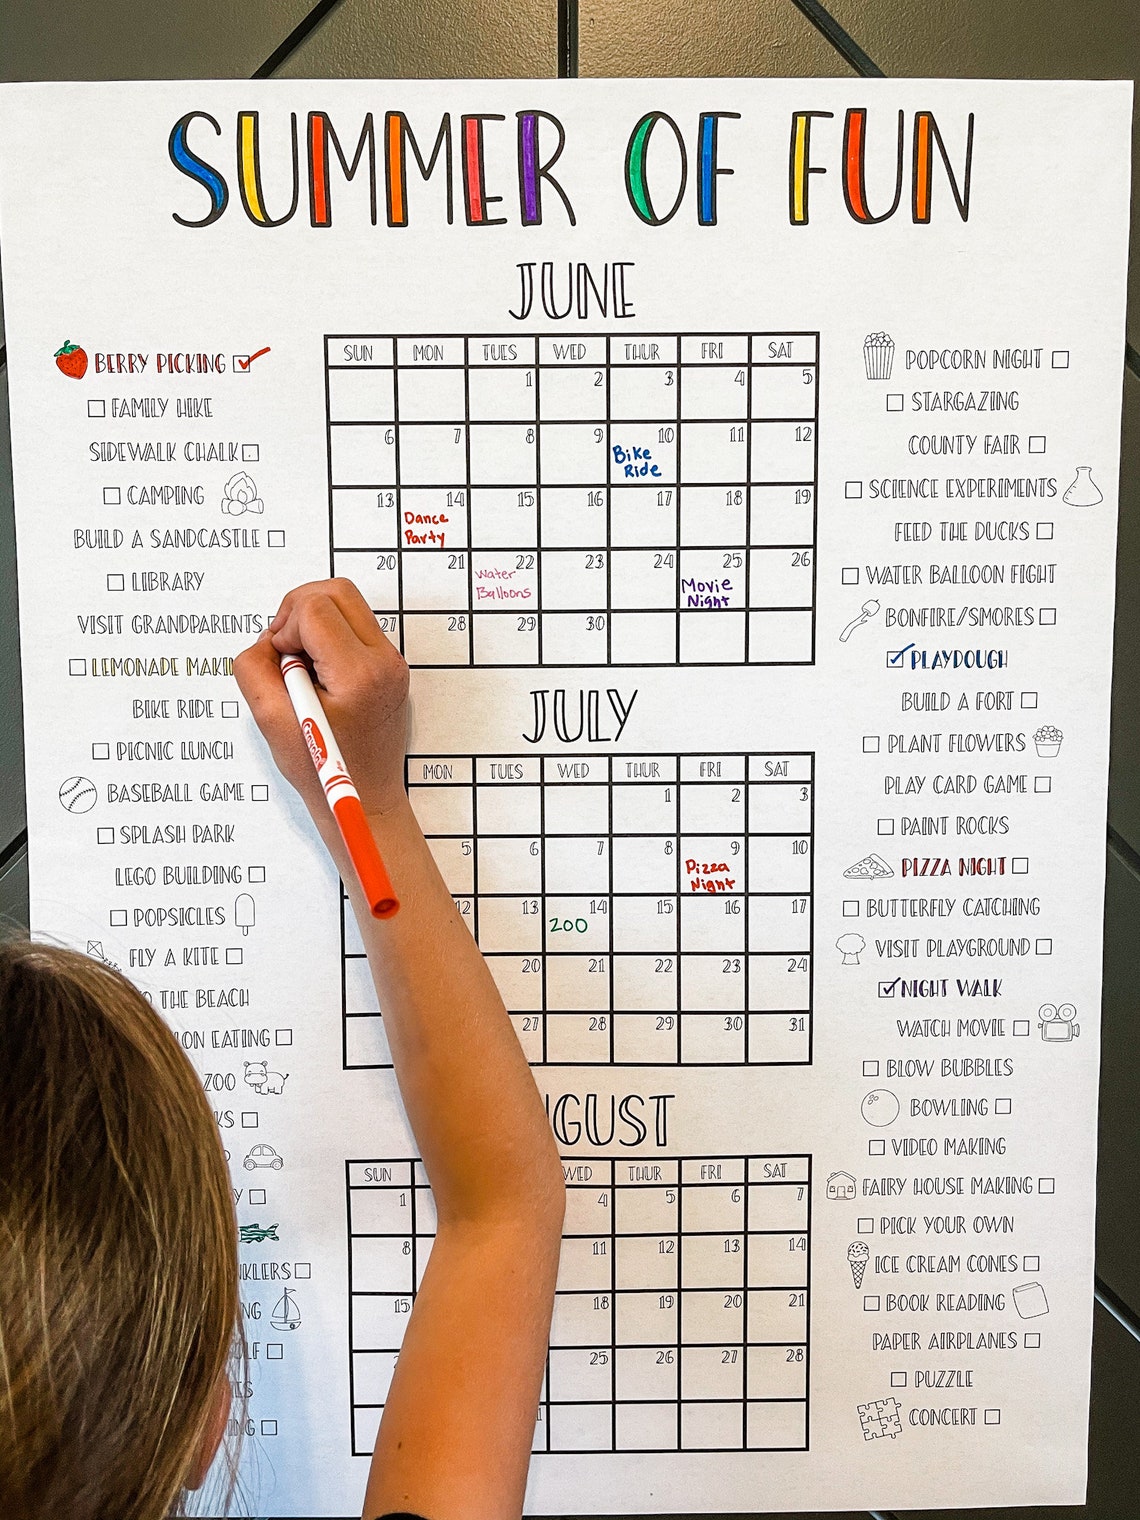 SUMMER OF FUN
BERRY PICKING
FAMILY HIKE
SIDEWALK CHALK
CAMPING
BUILD A SANDCASTLE
LIBRARY
VISIT GRANDPARENTS
LEMONADE
BIKE RIDE
PICNIC LUNCH
BASEBALL GAME
SPLASH PARK
LEGO BUILDING
POPSICLES
FLY A KITE
THE BEACH
EATING
ZOO
JUNE
SUN MON TUES WED THUR FRI SAT
1 2 3 4 5
6 7 8 9 10 11 12
Bike
Ride
13 14 15 16 17 18 19
Dance
Party
20 21 22 23 24 25 26
Water
Balloons
Movie
Night
27 28 29 30
Crayola
JULY
MON TUES WED THUR FRI SAT
1 2 3
5 6 7 8 9 10
Pizza
Night
12 13 14 15 16 17
ZOO
20 21 22 23 24
27 28 29 30 31
GUST
SUN WED THUR FRI SAT
1 4 5 6 7
8 11 12 13 14
15 18 19 20 21
25 26 27 28
POPCORN NIGHT
STARGAZING
COUNTY FAIR
SCIENCE EXPERIMENTS
FEED THE DUCKS
WATER BALLOON FIGHT
BONFIRE/SMORES
PLAYDOUGH
BUILD A FORT
PLANT FLOWERS
PLAY CARD GAME
PAINT ROCKS
PIZZA NIGHT
BUTTERFLY CATCHING
VISIT PLAYGROUND
NIGHT WALK
WATCH MOVIE
BLOW BUBBLES
BOWLING
VIDEO MAKING
FAIRY HOUSE MAKING
PICK YOUR OWN
ICE CREAM CONES
BOOK READING
PAPER AIRPLANES
PUZZLE
CONCERT